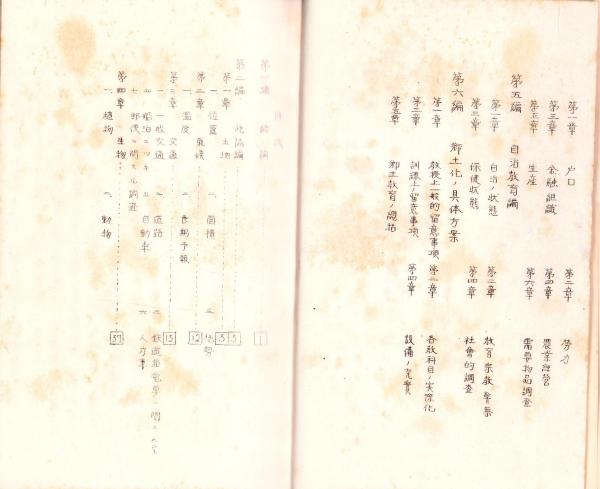 第一章 戸口 第二章 労力
第三章 金融組織 第四章 農業経営
第五章 生産 第六章 需要物品調査
第五編 自治教育編
第一章 自治ノ状態 第二章 教育宗教警察
第三章 保健状態 第四章 社会的調査
第六編 郷土化ノ具体方案
第一章 教授上一般的留意事項 第二章 各教科目ノ実際化
第三章 訓練上ノ留意事項 第四章 設備ノ充実
第五章 郷土教育ノ総括
目次
第一編 1
第二編 地
第一章 土地 3
一、位置 二、面積 三、地勢
第二章 気候 12
一、温度 二、長期予報
第三章 交通 13
一、一般交通 二、道路 三、鉄道
五、自動車 六、人力車
第四章 生物 37
一、植物 二、動物